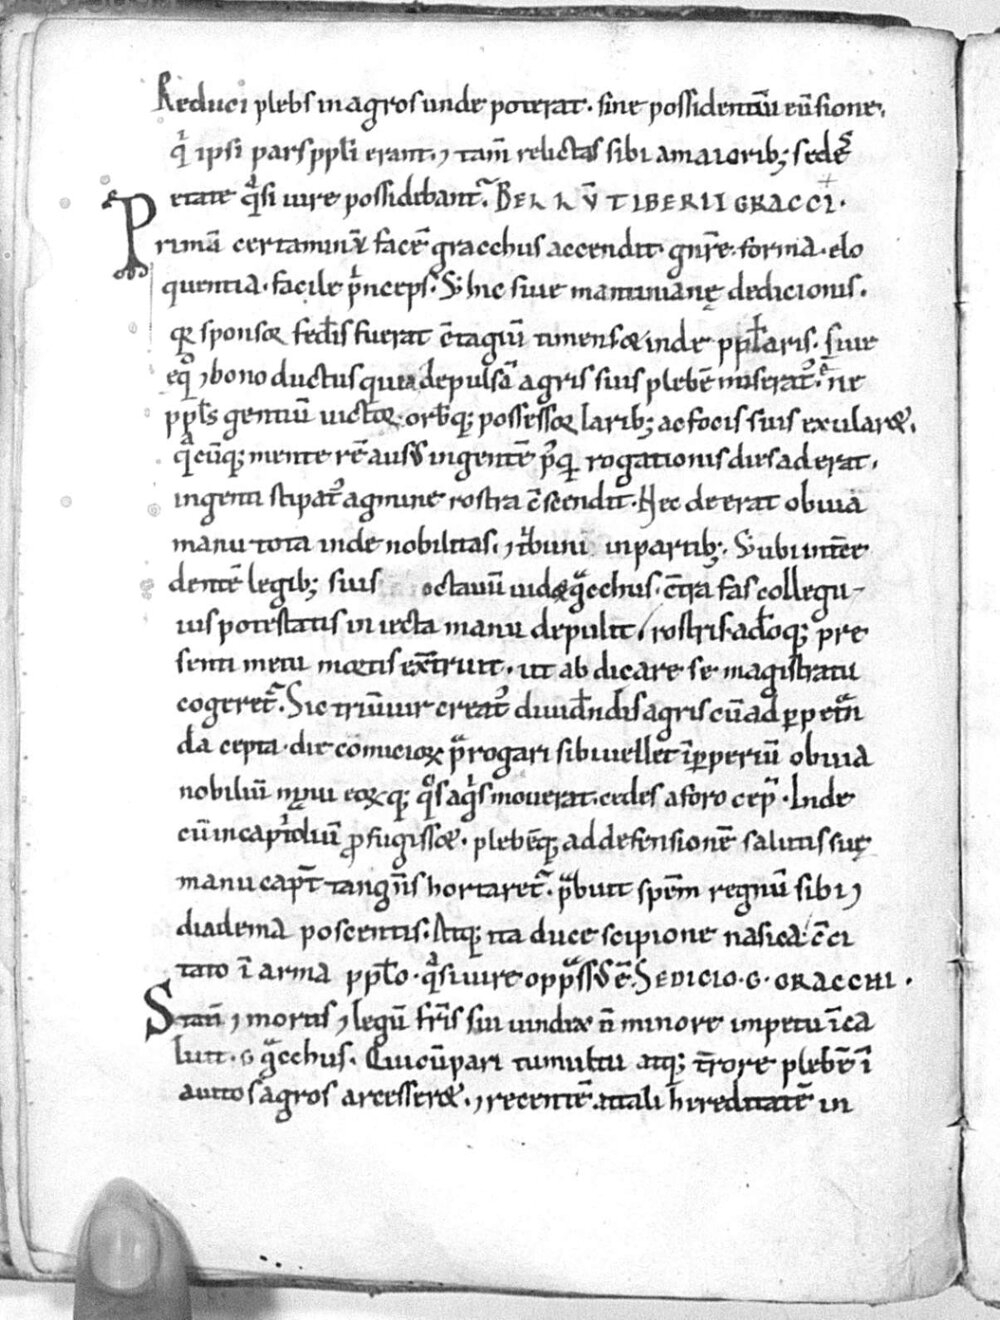 Reduci plebs in agros unde poterat · sine possidentiũ eũsione,
q ipsi pars ppli erant · ⁊ tam̃ relictas sibi amaiorib; sedes
etate q̃si iure possidebant᷑. BELLV̄ TIBERII GRACCI ·
Primã certaminũ facẽ gracchus accendit · gñre · forma · elo
quentia · facile p̃nceps. S; hic siue mantiniane dedicionis ·
qr sponsor fed̃is fuerat c̃tagiũ timens & inde pplaris · siue
eq̊ ⁊ bono ductus quia depulsã agris suis plebẽ miserat᷑ · ne
ppls gentiũ uictor · orbq; possessor larib; ac focis suis exular&,
q̃cũq; mente rẽ ausus ingentẽ p̃q rogationis dies aderat,
ingenti stipat᷑ agmine rostra c̃scendit · Nec deerat obuia
manu tota inde nobilitas · ⁊ tb̃uni in partib; · S; ubi int̃ce
dentẽ legib; suis octauiũ uid& g̃cchus · c̃tra fas collegii
ius potestatis iniecta manu depulit rostris · adoq; pre
senti metu mortis ext̃ruit · ut abdicare se magistratu
cogeret᷑. Sic triũuir creat᷑ diuid̃ndis agris cũ ad ꝑpet̃n
da cepta · die comicioꝝ p̃rogari sibi uellet ĩꝑeriũ obuia
nobiliũ manu eoꝝq; q̊s agis mouerat · cedes a foro cep̃ · Inde
cũ in capitoliũ ꝓfugiss& · plebẽq; ad defensionẽ salutis suę
manu capt̃ tangñs hortaret᷑ · p̃buit spẽm regnũ sibi ⁊
diadema poscentis · Atq; ita duce scipione nasica · c̃ci
tato ĩ arma pplo · q̃si iure opp̃ssus ẽ. SEDICIO · G · GRACCHI ·
Statĩ ⁊ mortis ⁊ legũ fr̃is sui uindex ñ minore impetu ĩca
luit · G g̃cchus. Qui cũ pari tumultu atq; t̃rore plebẽ ĩ
auitos agros arcesser& · ⁊ recentẽ attali hereditatẽ in